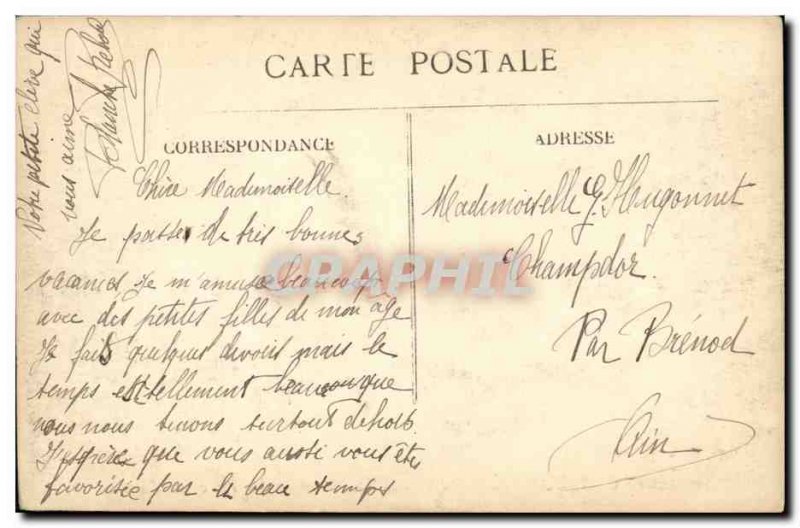 CARTE POSTALE
CORRESPONDANCE
Chère Mademoiselle.
Je passe de très bonnes
vacances Je m'amuse beaucoup
avec des petites filles de mon âge
Je fais quelques devoirs mais le
temps est tellement beau que
nous nous tenons surtout dehors.
J'espère que vous aussi vous êtes
favorisée par le beau temps
Votre petite élève qui
vous aime
Blanche
ADRESSE
Mademoiselle G. Hugonnet
Champdor.
Par Brénod
Ain
CPAPHIL